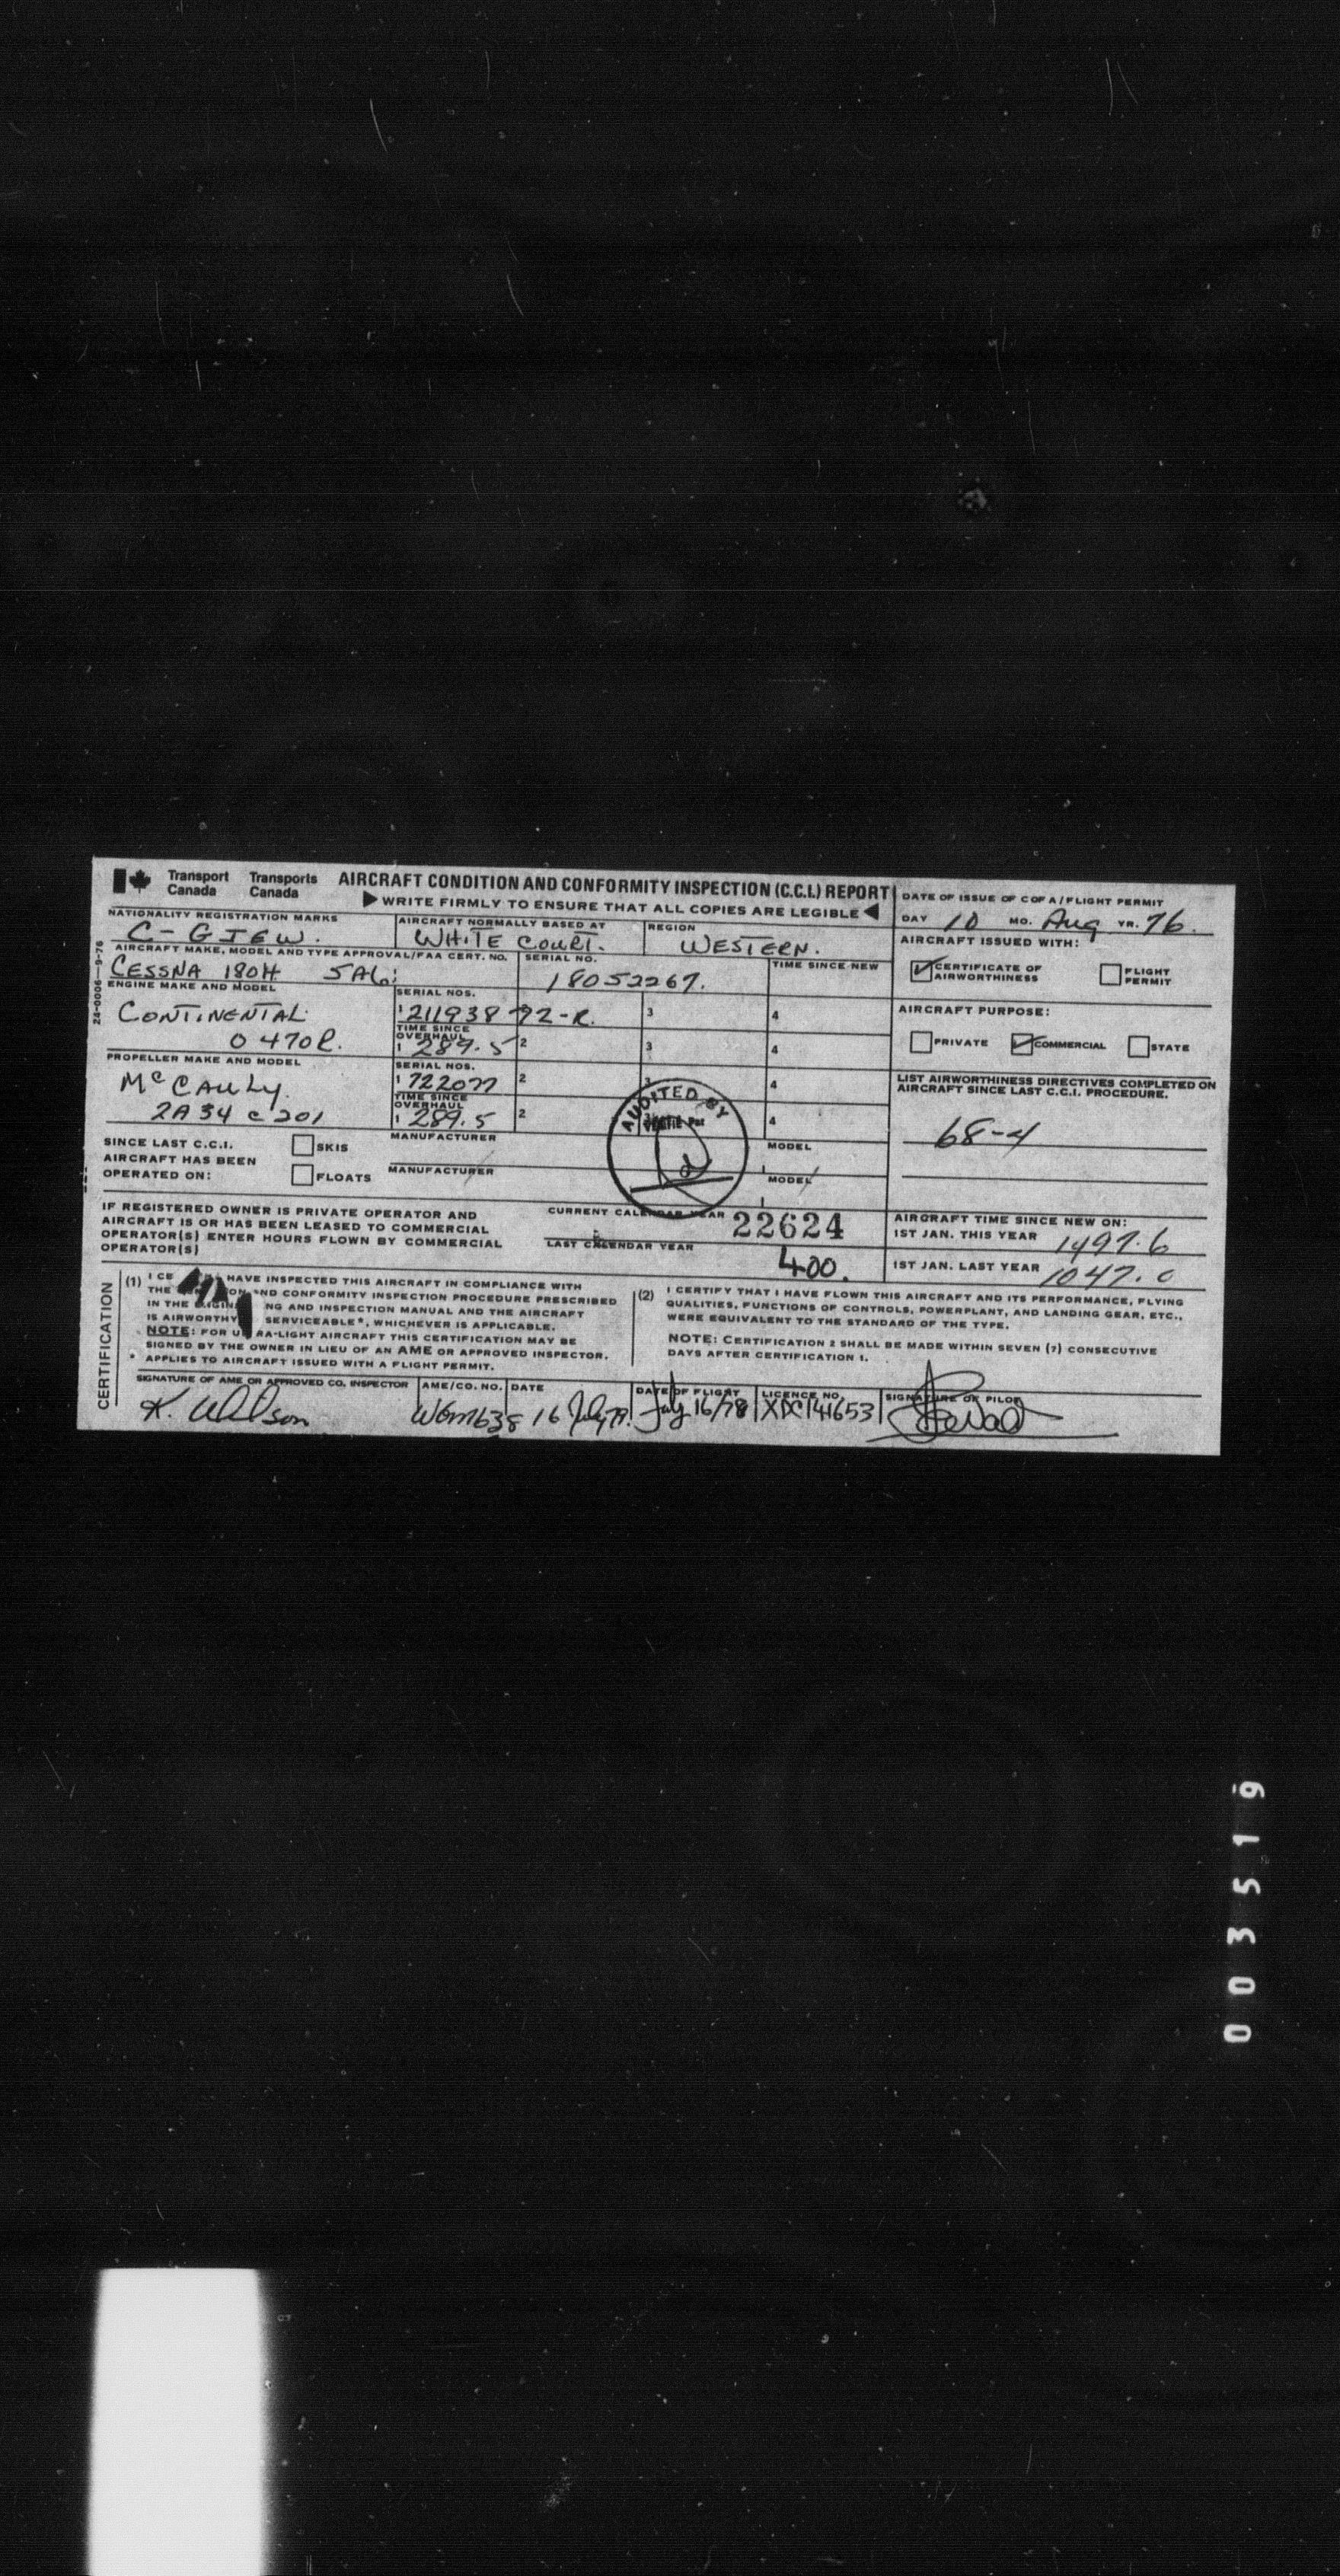 Transport Canada Transports Canada AIRCRAFT CONDITION AND CONFORMITY INSPECTION (C.C.I.) REPORT
WRITE FIRMLY TO ENSURE THAT ALL COPIES ARE LEGIBLE
DATE OF ISSUE OF C OF A/FLIGHT PERMIT
DAY 10 MO. Aug YR. 76.
NATIONALITY REGISTRATION MARKS
C-GIEW.
AIRCRAFT NORMALLY BASED AT
WHITE COURT.
REGION
WESTERN.
AIRCRAFT ISSUED WITH:
CERTIFICATE OF AIRWORTHINESS
FLIGHT PERMIT
AIRCRAFT MAKE, MODEL AND TYPE APPROVAL/FAA CERT. NO.
CESSNA 180H 5A6
SERIAL NO.
18052267.
TIME SINCE NEW
ENGINE MAKE AND MODEL
CONTINENTAL
O 470R.
SERIAL NOS.
1 211938-72-R. 3 4
TIME SINCE OVERHAUL
1 289.5 2 3 4
AIRCRAFT PURPOSE:
PRIVATE COMMERCIAL STATE
PROPELLER MAKE AND MODEL
McCAULY
2A34 C 201
SERIAL NOS.
1 722077 2 4
TIME SINCE OVERHAUL
1 289.5 2 4
AUDITED BY
LIST AIRWORTHINESS DIRECTIVES COMPLETED ON
AIRCRAFT SINCE LAST C.C.I. PROCEDURE.
68-4
SINCE LAST C.C.I.
AIRCRAFT HAS BEEN
OPERATED ON:
SKIS
FLOATS
MANUFACTURER
MODEL
MANUFACTURER
MODEL
IF REGISTERED OWNER IS PRIVATE OPERATOR AND
AIRCRAFT IS OR HAS BEEN LEASED TO COMMERCIAL
OPERATOR(S) ENTER HOURS FLOWN BY COMMERCIAL
OPERATOR(S)
CURRENT CALENDAR YEAR 22624
LAST CALENDAR YEAR
400.
AIRCRAFT TIME SINCE NEW ON:
1ST JAN. THIS YEAR 1497.6
1ST JAN. LAST YEAR 1047.0
CERTIFICATION
(1) I CE HAVE INSPECTED THIS AIRCRAFT IN COMPLIANCE WITH
THE ON AND CONFORMITY INSPECTION PROCEDURE PRESCRIBED
IN THE NG AND INSPECTION MANUAL AND THE AIRCRAFT
IS AIRWORTHY SERVICEABLE*, WHICHEVER IS APPLICABLE.
NOTE: FOR U RA-LIGHT AIRCRAFT THIS CERTIFICATION MAY BE
SIGNED BY THE OWNER IN LIEU OF AN AME OR APPROVED INSPECTOR.
* APPLIES TO AIRCRAFT ISSUED WITH A FLIGHT PERMIT.
(2) I CERTIFY THAT I HAVE FLOWN THIS AIRCRAFT AND ITS PERFORMANCE, FLYING
QUALITIES, FUNCTIONS OF CONTROLS, POWERPLANT, AND LANDING GEAR, ETC.,
WERE EQUIVALENT TO THE STANDARD OF THE TYPE.
NOTE: CERTIFICATION 2 SHALL BE MADE WITHIN SEVEN (7) CONSECUTIVE
DAYS AFTER CERTIFICATION 1.
SIGNATURE OF AME OR APPROVED CO. INSPECTOR
K.
AME/CO. NO.
DATE
16 July
DATE OF FLIGHT
July 16/78
LICENCE NO.
XDC141653
SIGNATURE OF PILOT
24-0006-9-76
003519